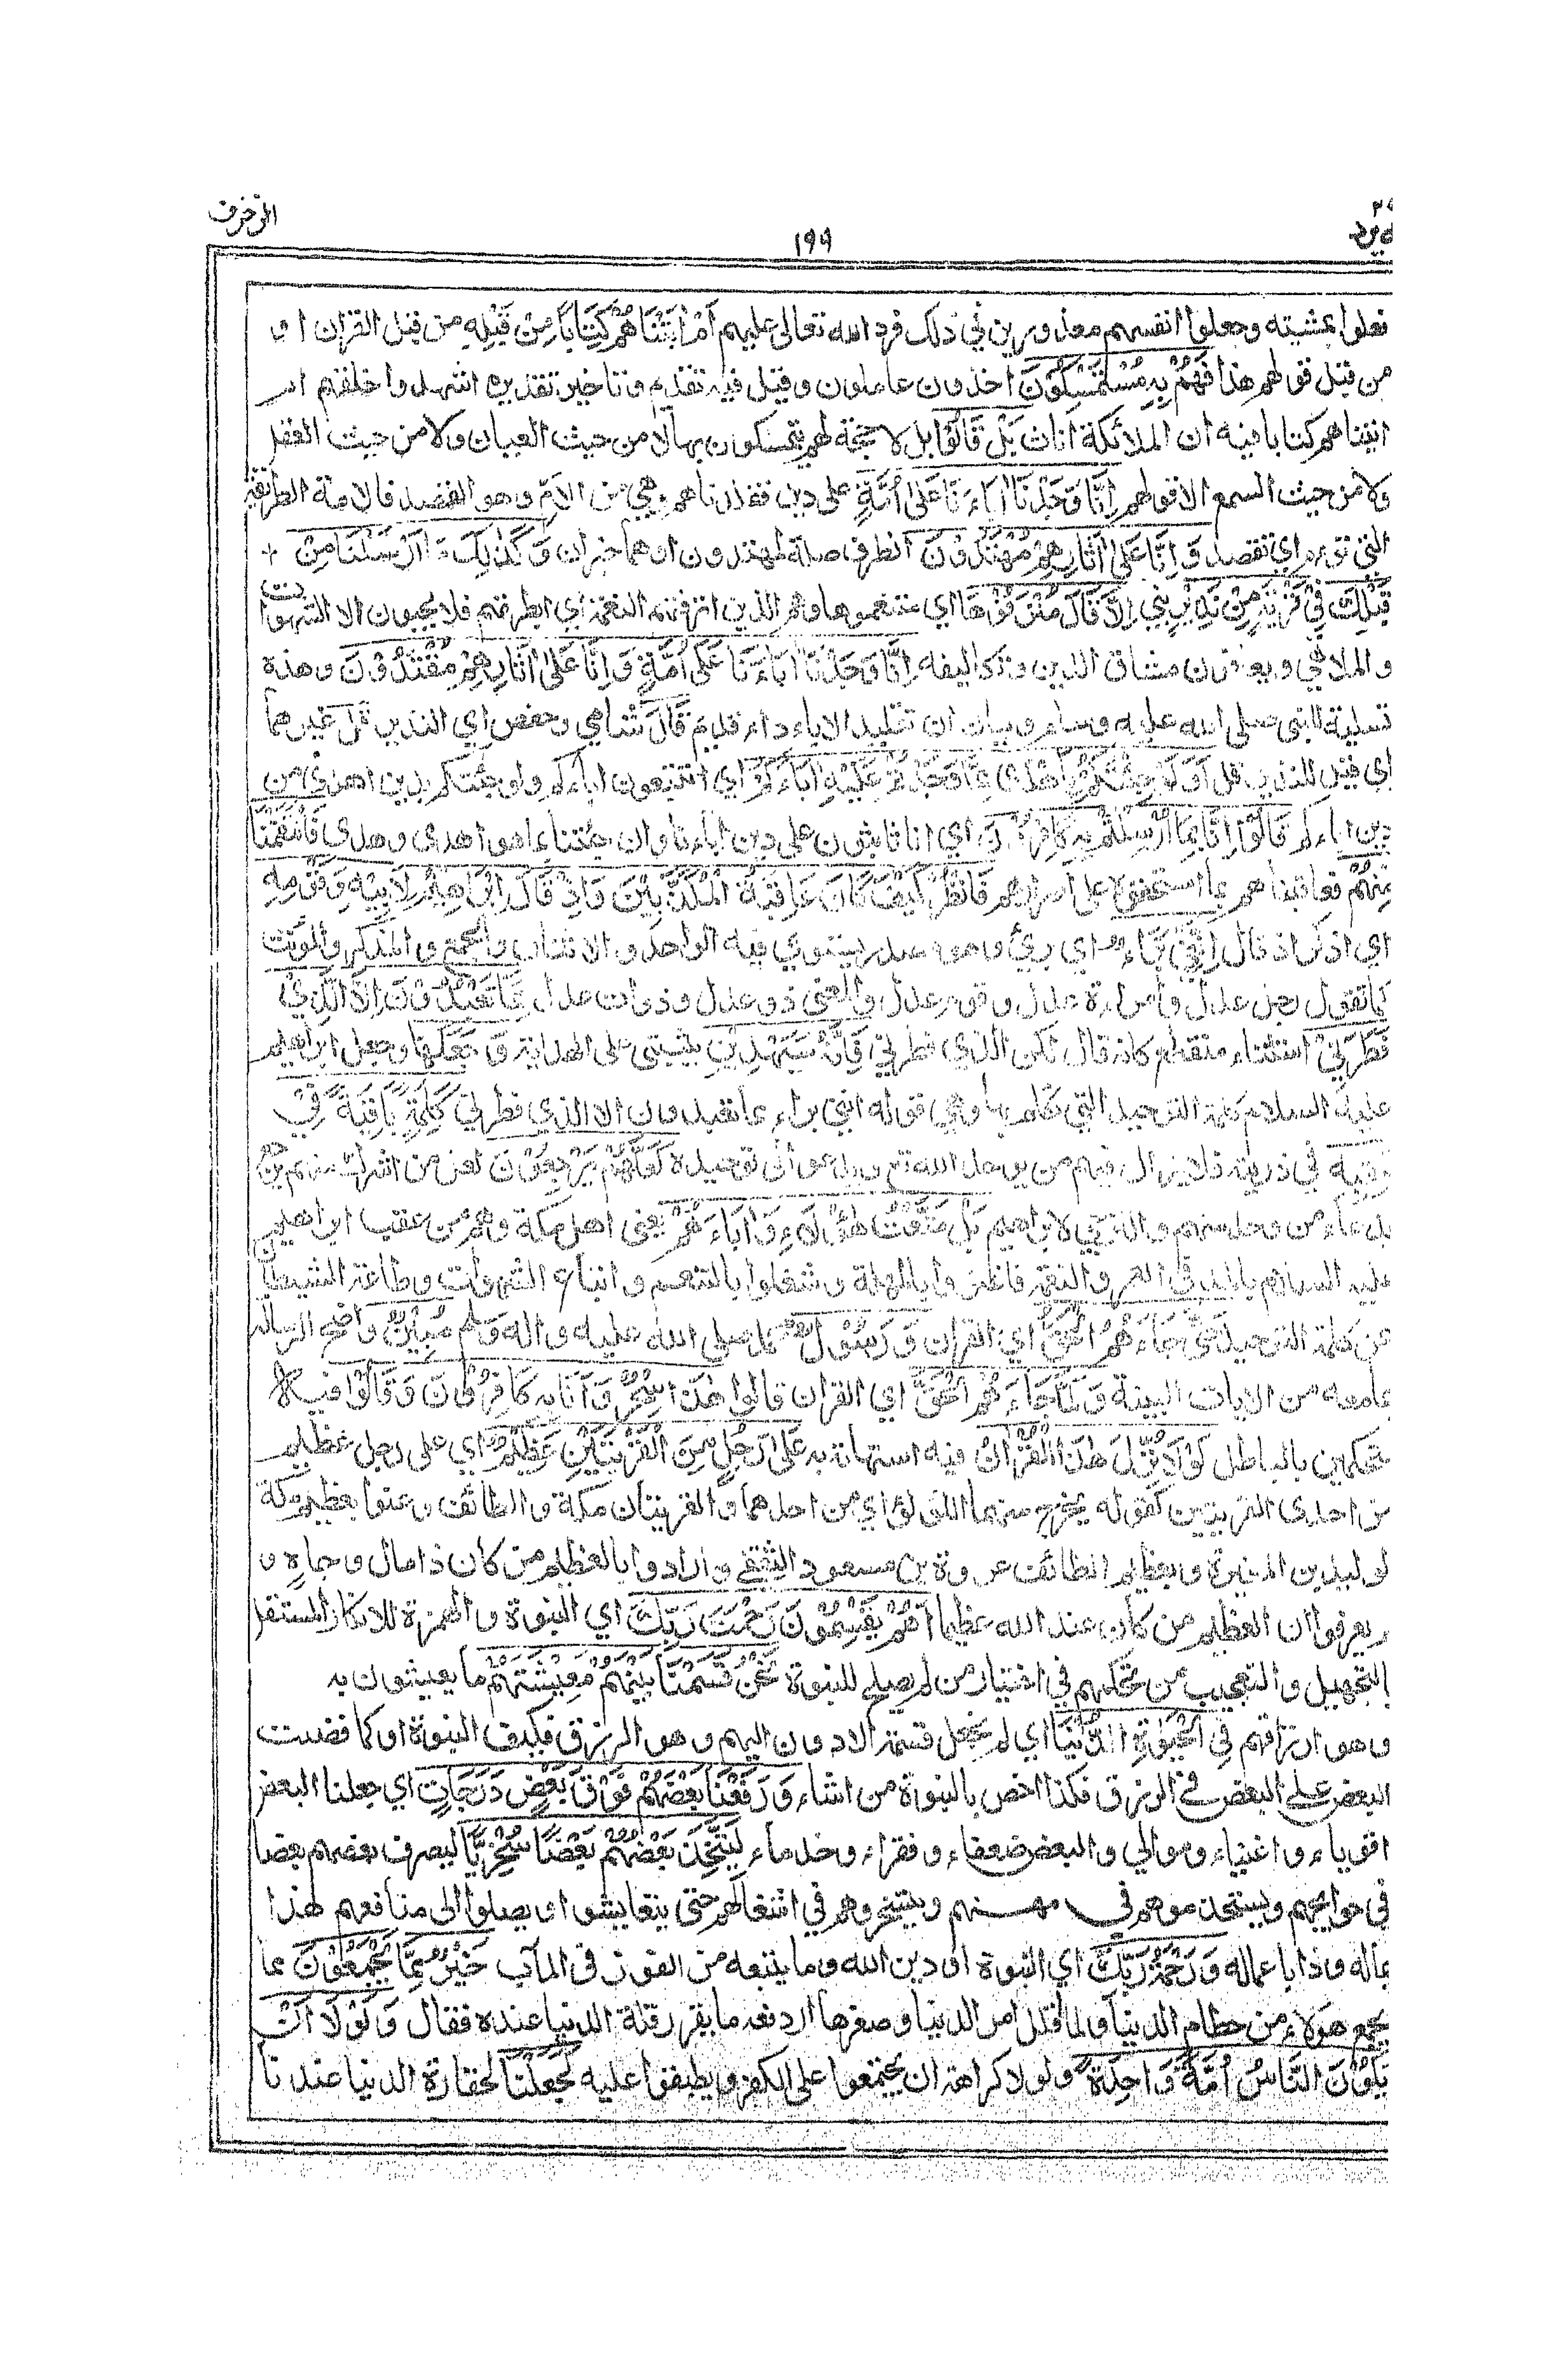 الزخرف
١٩٩
فعلوا بمشيته وجعلوا انفسهم معذورين في ذلك فرد الله تعالى عليهم اَمْ اٰتَيْنٰهُمْ كِتَابًا مِنْ قَبْلِهِ من قبل القران او
من قبل قولهم هذا فَهُمْ بِهِ مُسْتَمْسِكُوْنَ اخذون عاملون وقيل فيه تقديم وتاخير تقديره اشهدوا خلقهم ام
اتيناهم كتابا فيه ان الملائكة اناث بَلْ قَالُوْا بل لا حجة لهم يتمسكون بها لا من حيث العيان ولا من حيث العقل
ولا من حيث السمع الا قولهم اِنَّا وَجَدْنَا اٰبَاءَنَا عَلٰى اُمَّةٍ على دين فقلدناهم وهي من الام وهو القصد فالامة الطريقة
التي تؤم اي تقصد وَاِنَّا عَلٰى اٰثَارِهِمْ مُهْتَدُوْنَ الظرف صلة لمهتدون او هما خبران وَكَذٰلِكَ مَا اَرْسَلْنَا مِنْ
قَبْلِكَ فِيْ قَرْيَةٍ مِنْ نَذِيْرٍ نبي اِلَّا قَالَ مُتْرَفُوْهَا اي متنعموها وهم الذين اترفتهم النعمة اي ابطرتهم فلا يحبون الا الشهوات
والملاهي ويعافون مشاق الدين وتكاليفه اِنَّا وَجَدْنَا اٰبَاءَنَا عَلٰى اُمَّةٍ وَاِنَّا عَلٰى اٰثَارِهِمْ مُقْتَدُوْنَ وهذه
تسلية للنبي صلى الله عليه وسلم وبيان ان تقليد الاباء داء قديم قَالَ شامي وحفص اي النذير قُلْ غيرهما
اي قيل للنذير قل اَوَلَوْ جِئْتُكُمْ بِاَهْدٰى مِمَّا وَجَدْتُمْ عَلَيْهِ اٰبَاءَكُمْ اي اتتبعون اباءكم ولو جئتكم بدين اهدى من
دين اباءكم قَالُوْا اِنَّا بِمَا اُرْسِلْتُمْ بِهِ كَافِرُوْنَ اي انا ثابتون على دين اباءنا وان جئتنا بما هو اهدى وهدى فَانْتَقَمْنَا
مِنْهُمْ فعاقبناهم بما استحقوه على اصرارهم فَانْظُرْ كَيْفَ كَانَ عَاقِبَةُ الْمُكَذِّبِيْنَ وَاِذْ قَالَ اِبْرَاهِيْمُ لِاَبِيْهِ وَقَوْمِهِ
اي اذكر اذ قال اِنَّنِيْ بَرَاءٌ اي بريء وهو مصدر يستوي فيه الواحد والاثنان والجمع والمذكر والمؤنث
كما تقول رجل عدل وامراة عدل وقوم عدل والمعنى ذو عدل وذوات عدل مِمَّا تَعْبُدُوْنَ اِلَّا الَّذِيْ
فَطَرَنِيْ استثناء منقطع كانه قال لكن الذي فطرني فَاِنَّهُ سَيَهْدِيْنِ يثبتني على الهداية وَجَعَلَهَا وجعل ابراهيم
عليه السلام كلمة التوحيد التي تكلم بها وهي قوله انني براء مما تعبدون الا الذي فطرني كَلِمَةً بَاقِيَةً فِيْ
عَقِبِهِ في ذريته فلا يزال فيهم من يوحد الله تع ويدعو الى توحيده لَعَلَّهُمْ يَرْجِعُوْنَ لعل من اشرك منهم يرجع
بدعاء من وحد منهم والترجي لابراهيم بَلْ مَتَّعْتُ هٰؤُلَاءِ وَاٰبَاءَهُمْ يعني اهل مكة وهم من عقب ابراهيم
عليه السلام بالمد في العمر والنعمة فاغتروا بالمهلة وشغلوا بالتنعم واتباع الشهوات وطاعة الشيطان
عن كلمة التوحيد حَتّٰى جَاءَهُمُ الْحَقُّ اي القران وَرَسُوْلٌ محمد صلى الله عليه واله وسلم مُبِيْنٌ واضح الرسالة
بما معه من الايات البينة وَلَمَّا جَاءَهُمُ الْحَقُّ اي القران قالوا هٰذَا سِحْرٌ وَاِنَّا بِهِ كَافِرُوْنَ وَقَالُوْا فيه
متحكمين بالباطل لَوْلَا نُزِّلَ هٰذَا الْقُرْاٰنُ فيه استهانة به عَلٰى رَجُلٍ مِنَ الْقَرْيَتَيْنِ عَظِيْمٍ اي على رجل عظيم
من احدى القريتين كقوله يخرج منهما اللؤلؤ اي من احدهما والقريتان مكة والطائف وعنوا بعظيم مكة
لوليد بن المغيرة وبعظيم الطائف عروة بن مسعود الثقفي وارادوا بالعظيم من كان ذا مال وجاه و
لم يعرفوا ان العظيم من كان عند الله عظيما اَهُمْ يَقْسِمُوْنَ رَحْمَتَ رَبِّكَ اي النبوة والهمزة للانكار المستقل
بالتجهيل والتعجيب من تحكمهم في اختيار من لم يصلح للنبوة نَحْنُ قَسَمْنَا بَيْنَهُمْ مَعِيْشَتَهُمْ ما يعيشون به
وهو ارزاقهم فِي الْحَيٰوةِ الدُّنْيَا اي لم نجعل قسمة الادون اليهم وهو الرزق فكيف النبوة او كما فضلت
البعض على البعض في الرزق فكذا اخص بالنبوة من اشاء وَرَفَعْنَا بَعْضَهُمْ فَوْقَ بَعْضٍ دَرَجَاتٍ اي جعلنا البعض
اقوياء واغنياء وموالي والبعض ضعفاء وفقراء وخدماء لِيَتَّخِذَ بَعْضُهُمْ بَعْضًا سُخْرِيًّا ليصرف بعضهم بعضا
في حوايجهم ويستخدموهم في مهنهم ويتسخروهم في اشغالهم حتى يتعايشوا ويصلوا الى منافعهم هذا
بماله وذا باعماله وَرَحْمَةُ رَبِّكَ اي النبوة او دين الله وما يتبعه من الفوز في المآب خَيْرٌ مِمَّا يَجْمَعُوْنَ مما
يجمع هؤلاء من حطام الدنيا ولما قلل امر الدنيا وصغرها اردفه ما يقرر قلة الدنيا عنده فقال وَلَوْلَا اَنْ
يَكُوْنَ النَّاسُ اُمَّةً وَاحِدَةً ولولا كراهة ان يجتمعوا على الكفر ويطبقوا عليه لَجَعَلْنَا لحقارة الدنيا عندنا